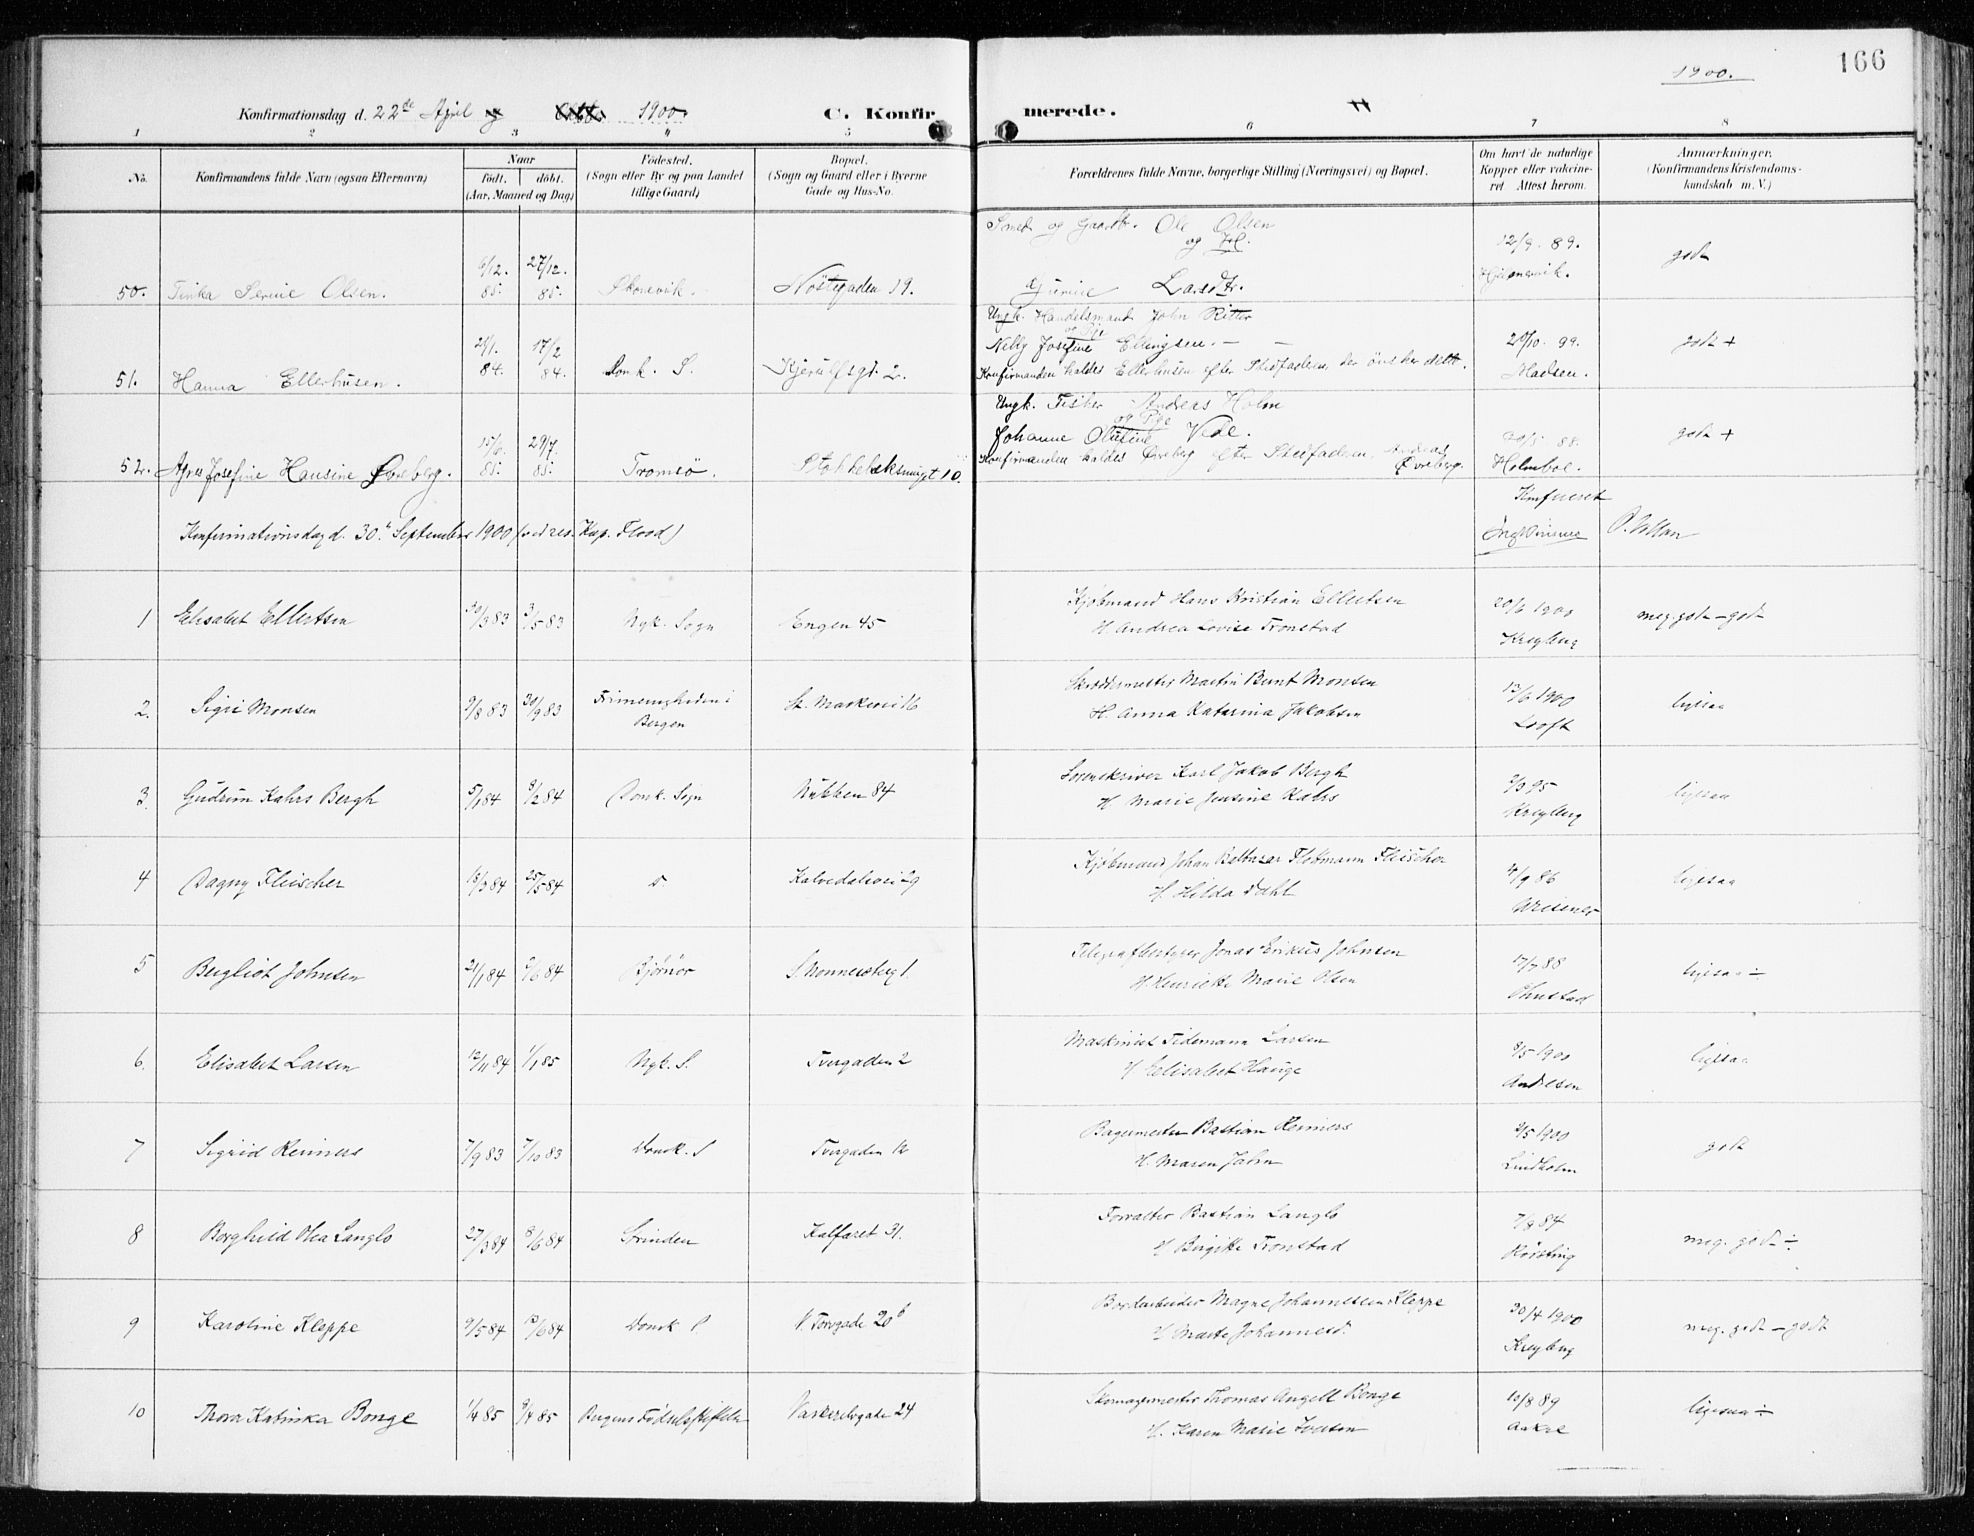 166
1900.
Konfirmationsdag d. 22de April 1900
C. Konfirmerede.
1 2 3 4 5 6 7 8
No.
Konfirmandens fulde Navn (ogsaa Efternavn)
Naar
født. døbt.
(Aar, Maaned og Dag)
Fødested.
(Sogn eller By og paa Landet
tillige Gaard)
Bopæl.
(Sogn og Gaard eller i Byerne
Gade og Hus-No.
Forældrenes fulde Navne, borgerlige Stilling (Næringsvei) og Bopæl.
Om havt de naturlige
Kopper eller vakcine-
ret Attest herom.
Anmærkninger.
(Konfirmandens Kristendoms-
kundskab m. V.)
50. Tinka Serine Olsen. 6/12. 85. 27/12. 85. Skonevik. Nöstegaden 19. Smed og Gaardbr. Ole Olsen og H. Gurine Larsdtr. 12/9. 89. godt
51. Hanna Ellerhusen. 84. 17/2 84. Domk. S. Kjerulfsgt. 2. Ungk. Handelsmand John Ritter og Pige
Nelly Josefine Ellingsen.
Konfirmanden kaldes Ellerhusen efter Stedfaderen, der önsker dette. 99. Madsen. godt +
52. Agnes Josefine Hansine Øvreberg. 15/6. 85. 29/7. 85. Tromsö. 10. Ungk. Fisker Andreas Holm og Pige
Johanne Olufine Vede.
Konfirmanden kaldes Øvreberg efter Stedfaderen Andreas Øvreberg. 88. Holmboe. godt +
Konfirmationsdag d. 30. September 1900 (ved res. Kap. Flood)
Konfereret
1 Elisabet Ellertsen 30/3 83 3/5 83 Nyk. Sogn Engen 45 Kjøbmand Hans Kristian Ellertsen
H. Andrea Lovise Tronstad 20/6 1900 Kreyberg meg. godt - godt
2. Sigri Monsen 9/8 83 30/9 83 Bergen St. Markevei 16 Skræddermester Martin Bernt Monsen
H. Anna Katarina Jakobsen 13/6 1900 Looft ligesaa
3. Gudrun Kahrs Bergh 5/1 84 8/2 84 Domk. Sogn Nubben 84 Sorenskriver Karl Jakob Bergh
H. Marie Jensine Kahrs 95 Kreyberg ligesaa
4 Dagny Fleischer 84 25/5 84 Kalvedalsvei 29 Kjøbmand Johan Baltazar Flottmann Fleischer
H. Hilda Dahl 86 Wiesener ligesaa
5 Bergliot Johnsen 21/1 84 84 Bjørnør Telegrafbestyrer Jonas Erikus Johnsen
H. Henriette Marie Olsen 17/7 88 Ohnstad ligesaa ÷
6. Elisabet Larsen 12/11 84 1/1 85 Nyk. S. Tvergaden 2 Maskinist Tidemann Larsen
H. Elisabet Hauge 8/5 1900 Andresen ligesaa
7 Sigrid Reimers 7/9 83 7/10 83 Domk. S Tvergaden Bagermester Bastian Reimers
H. Maren Jahn 9/5 1900 Lindholm godt
8 Borghild Olea Langlo 27/3 84 8/6 84 Strinden Kalfaret 31. Forvalter Bastian Langlo
H. Birgitte Tronstad 7/8 84 meg. godt ÷
9 Karoline Kleppe 9/5 84 84 Domk S V. Torvgade 20b Bordarbeider Magne Johannessen Kleppe
H. Marte Johannesd. 30/4 1900 Kreyberg meg. godt - godt
10 Thora Katinka Bonge 1/4 85 85 Bergens Fødselsstiftelse Vaskerelvgade 24 Skomagermester Thomas Angell Bonge
H. Karen Marie Iversen 10/8 89 Aakre ligesaa ÷